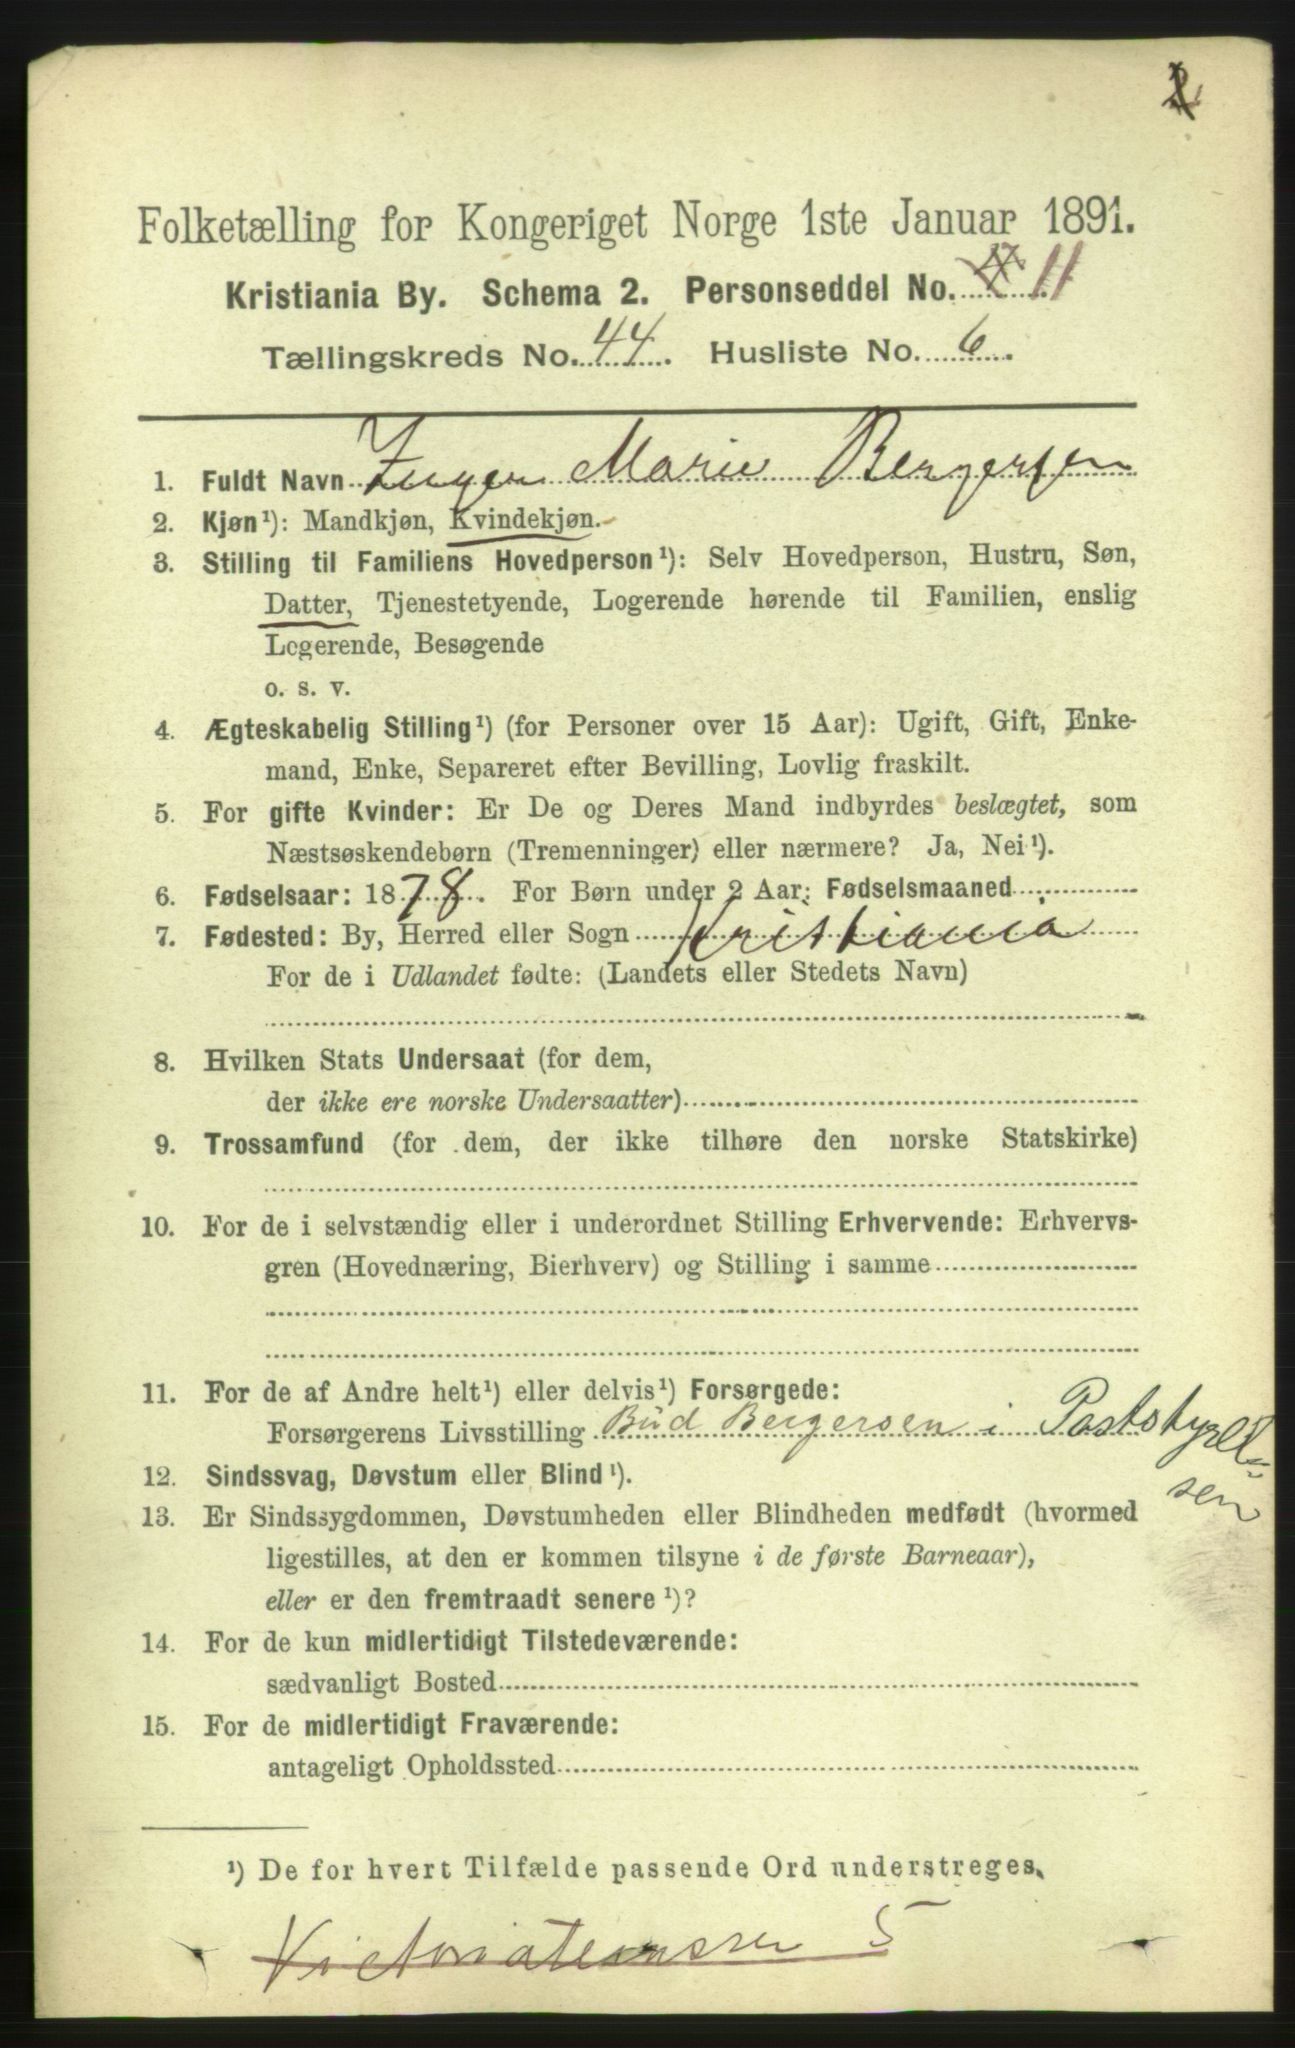 Folketælling for Kongeriget Norge 1ste Januar 1891.
Kristiania By. Schema 2. Personseddel No. 11
Tællingskreds No. 44. Husliste No. 6.
1. Fuldt Navn Inger Marie Bergersen
2. Kjøn¹): Mandkjøn, Kvindekjøn.
3. Stilling til Familiens Hovedperson¹): Selv Hovedperson, Hustru, Søn,
Datter, Tjenestetyende, Logerende hørende til Familien, enslig
Logerende, Besøgende
o. s. v.
4. Ægteskabelig Stilling¹) (for Personer over 15 Aar): Ugift, Gift, Enke-
mand, Enke, Separeret efter Bevilling, Lovlig fraskilt.
5. For gifte Kvinder: Er De og Deres Mand indbyrdes beslægtet, som
Næstsøskendebørn (Tremenninger) eller nærmere? Ja, Nei¹).
6. Fødselsaar: 1878. For Børn under 2 Aar: Fødselsmaaned
7. Fødested: By, Herred eller Sogn Kristiania
For de i Udlandet fødte: (Landets eller Stedets Navn)
8. Hvilken Stats Undersaat (for dem,
der ikke ere norske Undersaatter)
9. Trossamfund (for dem, der ikke tilhøre den norske Statskirke)
10. For de i selvstændig eller i underordnet Stilling Erhvervende: Erhvervs-
gren (Hovednæring, Bierhverv) og Stilling i samme
11. For de af Andre helt¹) eller delvis¹) Forsørgede:
Forsørgerens Livsstilling Bud Bergersen i Poststyrel=
sen
12. Sindssvag, Døvstum eller Blind¹).
13. Er Sindssygdommen, Døvstumheden eller Blindheden medfødt (hvormed
ligestilles, at den er kommen tilsyne i de første Barneaar),
eller er den fremtraadt senere¹)?
14. For de kun midlertidigt Tilstedeværende:
sædvanligt Bosted
15. For de midlertidigt Fraværende:
antageligt Opholdssted
¹) De for hvert Tilfælde passende Ord understreges.
5